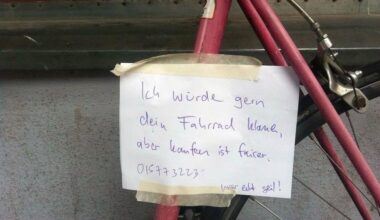 Ich würde gern
dein Fahrrad klauen,
aber kaufen ist fairer.
016773223
wär echt geil!